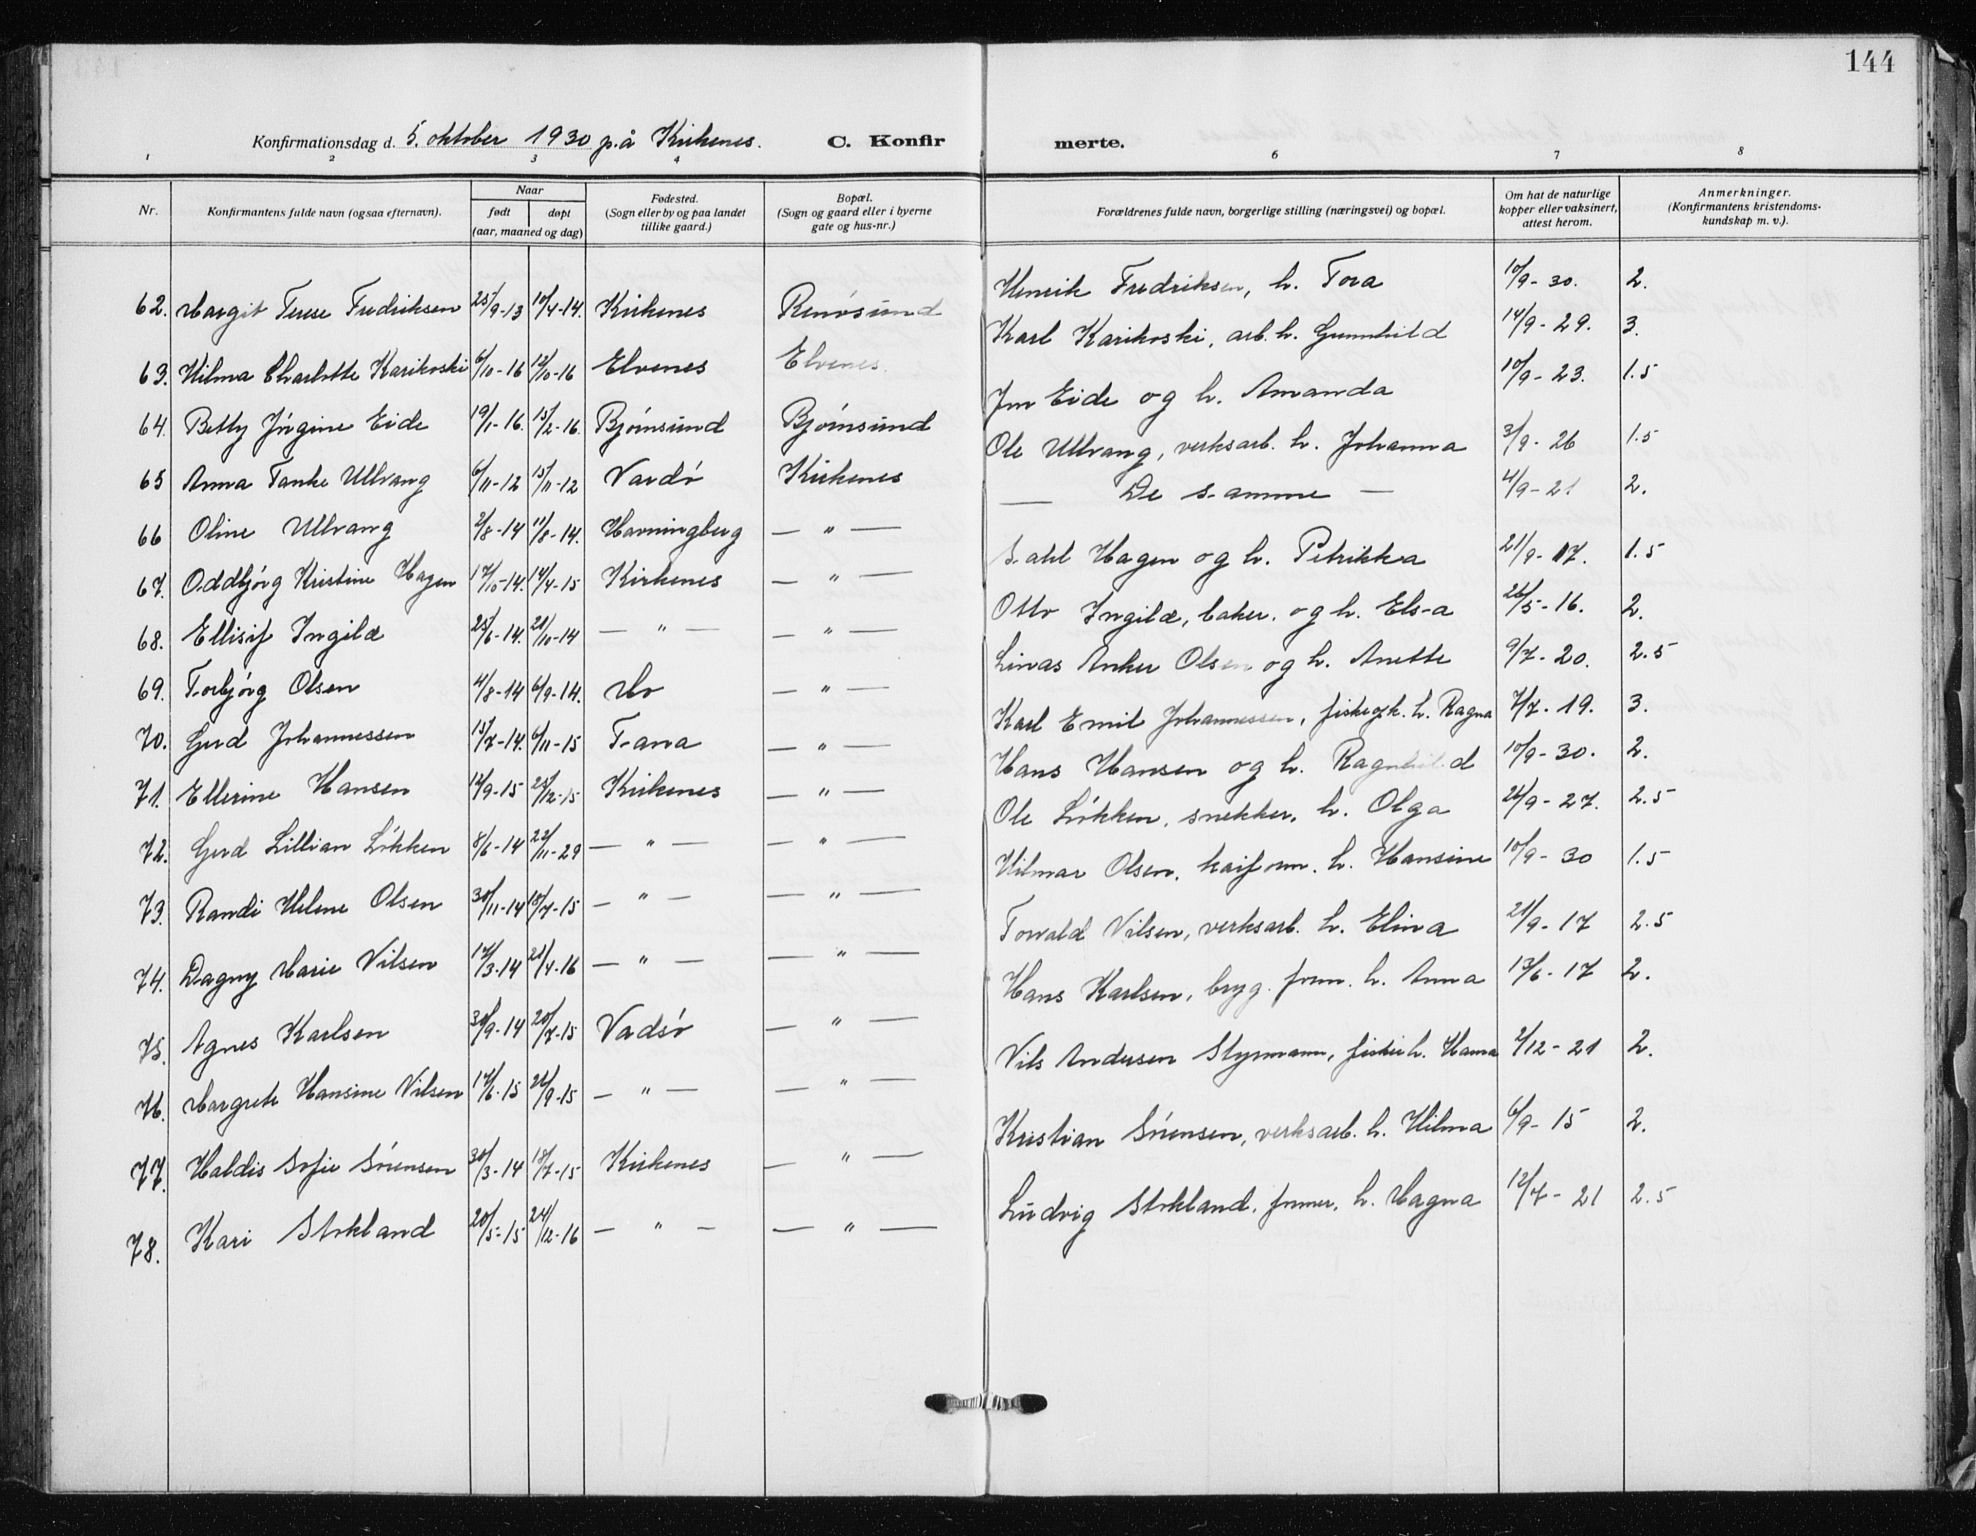 144
Konfirmationsdag d. 5. oktober 1930 på Kirkenes. C. Konfirmerte.
1 2 3 4 6 7 8
Nr. Konfirmantens fulde navn (ogsaa efternavn). Naar født døpt (aar, maaned og dag) Fødested. (Sogn eller by og paa landet tillike gaard.) Bopæl. (Sogn og gaard eller i byerne gate og hus-nr.) Forældrenes fulde navn, borgerlige stilling (næringsvei) og bopæl. Om hat de naturlige kopper eller vaksinert, attest herom. Anmerkninger. (Konfirmantens kristendomskundskap m. v.).
62. Margit Terese Fredriksen 25/9-13 10/4-14. Kirkenes Renøsund Henrik Fredriksen, h. Tora 10/9-30. 2.
63. Hilma Charlotte Karikoski 6/10-16 12/10-16 Elvenes Elvenes. Karl Karikoski, arb. h. Gunnhild 14/9-29. 3.
64. Betty Jørgine Eide 19/1-16. 15/2-16. Bjørnsund Bjørnsund Jon Eide og h. Amanda 10/9-23. 1.5
65 Anna Tanke Ullvang 6/11-12 15/11-12 Vardø Kirkenes Ole Ullvang, verksarb. h. Johanna 3/9-26 1.5
66 Oline Ullvang 2/8-14 11/8-14. Havningberg — " — — De samme — 4/9-21 2.
67. Oddbjørg Kristine Hagen 17/10-14. 14/4-15 Kirkenes — " — Hagen og h. Petrikka 21/9-17. 1.5
68. Ellisif Ingilæ 25/6-14. 21/10-14 — " — — " — Otto Ingilæ, baker. og h. Elsa 26/5-16. 2.
69. Torbjørg Olsen 4/8-14 6/9-14. Mo — " — Linas Anker Olsen og h. Anette 9/7-20. 2.5
70. Gerd Johannessen 15/7-14. 6/11-15 Tana — " — Karl Emil Johannessen, h. Ragna 7/7-19. 3.
71. Ellerine Hansen 14/9-15 25/12-15 Kirkenes — " — Hans Hansen og h. Ragnhild 10/9-30. 2.
72. Gerd Lillian Løkken 8/6-14 22/11-29 — " — — " — Ole Løkken, snekker, h. Olga 26/9-27. 2.5
73. Randi Helene Olsen 30/11-14 15/7-15 — " — — " — Hilmar Olsen, h. Hansine 10/9-30 1.5
74. Dagny Marie Nilsen 17/3-14 21/4-16 — " — — " — Torvald Nilsen, verksarb. h. Elina 21/9-17 2.5
75. Agnes Karlsen 30/9-14 20/7-15 Vadsø — " — Hans Karlsen, bryg. form. h. Anna 13/6-17 2.
76. Margrete Hansine Nilsen 17/6-15 26/9-15 — " — — " — Nils Andersen Styrmann, fisker h. Hanna 2/12-21 2.
77. Haldis Sofie Sørensen 30/3-14 18/7-15 Kirkenes — " — Kristian Sørensen, verksarb. h. Hilma 6/9-15 2.
78. Kari Stokland 20/5-15 24/12-16 — " — — " — Ludvig Stokland, former, h. Magna 12/7-21 2.5